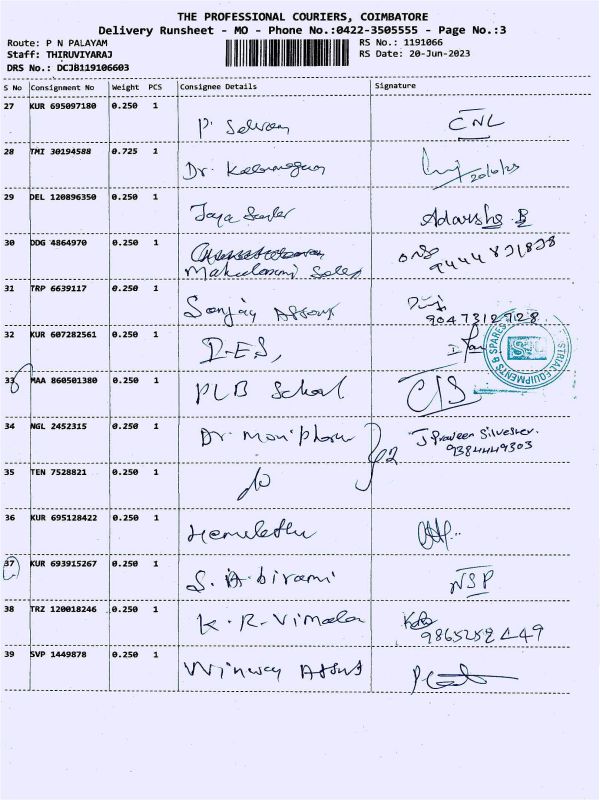 THE PROFESSIONAL COURIERS, COIMBATORE
Delivery Runsheet - MO - Phone No.:0422-3505555 - Page No.:3
Route: P N PALAYAM
RS No.: 1191066
Staff: THIRUVIYARAJ
RS Date: 20-Jun-2023
DRS No.: DCJB119106603
S No Consignment No Weight PCS Consignee Details Signature
27 KUR 695097180 0.250 1
P. Selvam CNL
28 TMI 30194588 0.725 1
Dr. 20/6/23
29 DEL 120896350 0.250 1
Jaya Adarsha B
30 DDG 4864970 0.250 1
31 TRP 6639117 0.250 1
Sanjay Assors
9047312728
32 KUR 607282561 0.250 1
I.E.S,
STRIAL EQUIPMENTS & SPARES
33 MAA 860501380 0.250 1
PLB School CIS
34 NGL 2452315 0.250 1
Dr J Praveen Silvester.
9384449303
35 TEN 7528821 0.250 1
36 KUR 695128422 0.250 1
Hemalatha
37 KUR 693915267 0.250 1
S. Abirami NSP
38 TRZ 120018246 0.250 1
K. R. Vimala
39 SVP 1449878 0.250 1
Winway Assors